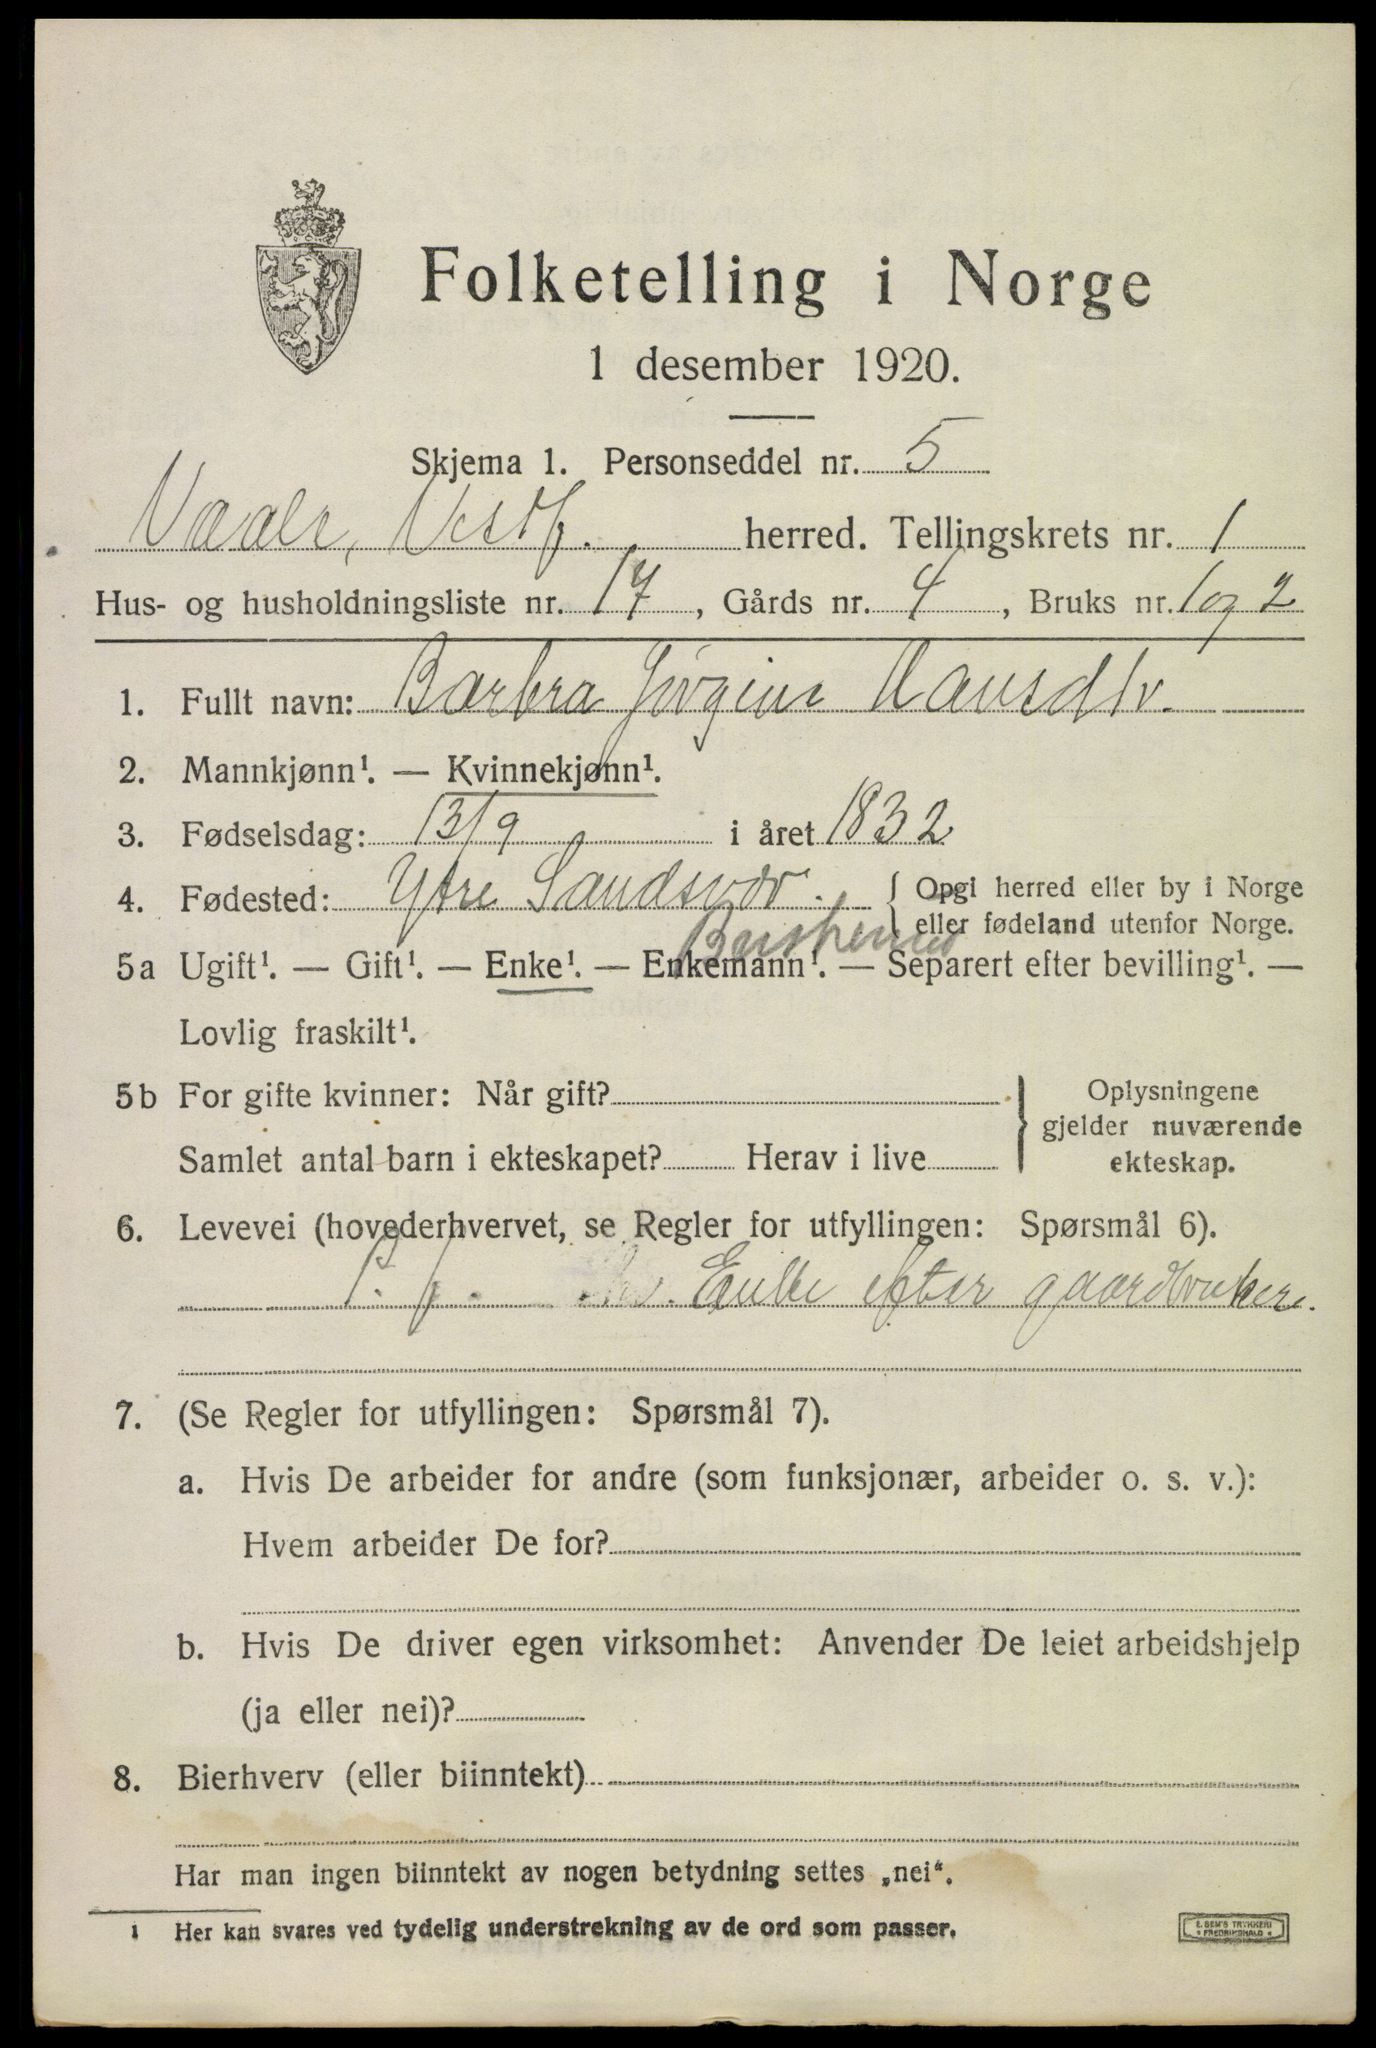 Folketelling i Norge
1 desember 1920.
Skjema 1. Personseddel nr. 5
Vaale, Vestf. herred. Tellingskrets nr. 1
Hus- og husholdningsliste nr. 17, Gårds nr. 4, Bruks nr. 1 og 2
1. Fullt navn: Barbra Jørgine Hansdtr.
2. Mannkjønn¹. — Kvinnekjønn¹.
3. Fødselsdag: 13/9 i året 1832
4. Fødested: Ytre Sandsvær. { Opgi herred eller by i Norge
eller fødeland utenfor Norge.
5a Ugift¹. — Gift¹. — Enke¹. — Enkemann¹. — Separert efter bevilling¹. —
Lovlig fraskilt¹.
5b For gifte kvinner: Når gift? } Oplysningene
gjelder nuværende
Samlet antal barn i ekteskapet? Herav i live ekteskap.
6. Levevei (hovederhvervet, se Regler for utfyllingen: Spørsmål 6).
Enke efter gaardbruker.
7. (Se Regler for utfyllingen: Spørsmål 7).
a. Hvis De arbeider for andre (som funksjonær, arbeider o. s. v.):
Hvem arbeider De for?
b. Hvis De driver egen virksomhet: Anvender De leiet arbeidshjelp
(ja eller nei)?
8. Bierhverv (eller biinntekt)
Har man ingen biinntekt av nogen betydning settes „nei“.
1 Her kan svares ved tydelig understrekning av de ord som passer.
E. SEM'S TRYKKERI
* FREDRIKSHALD *